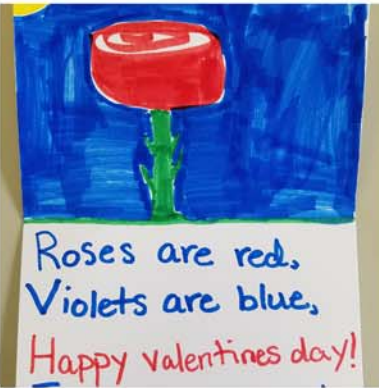 Roses are red,
Violets are blue,
Happy valentines day!